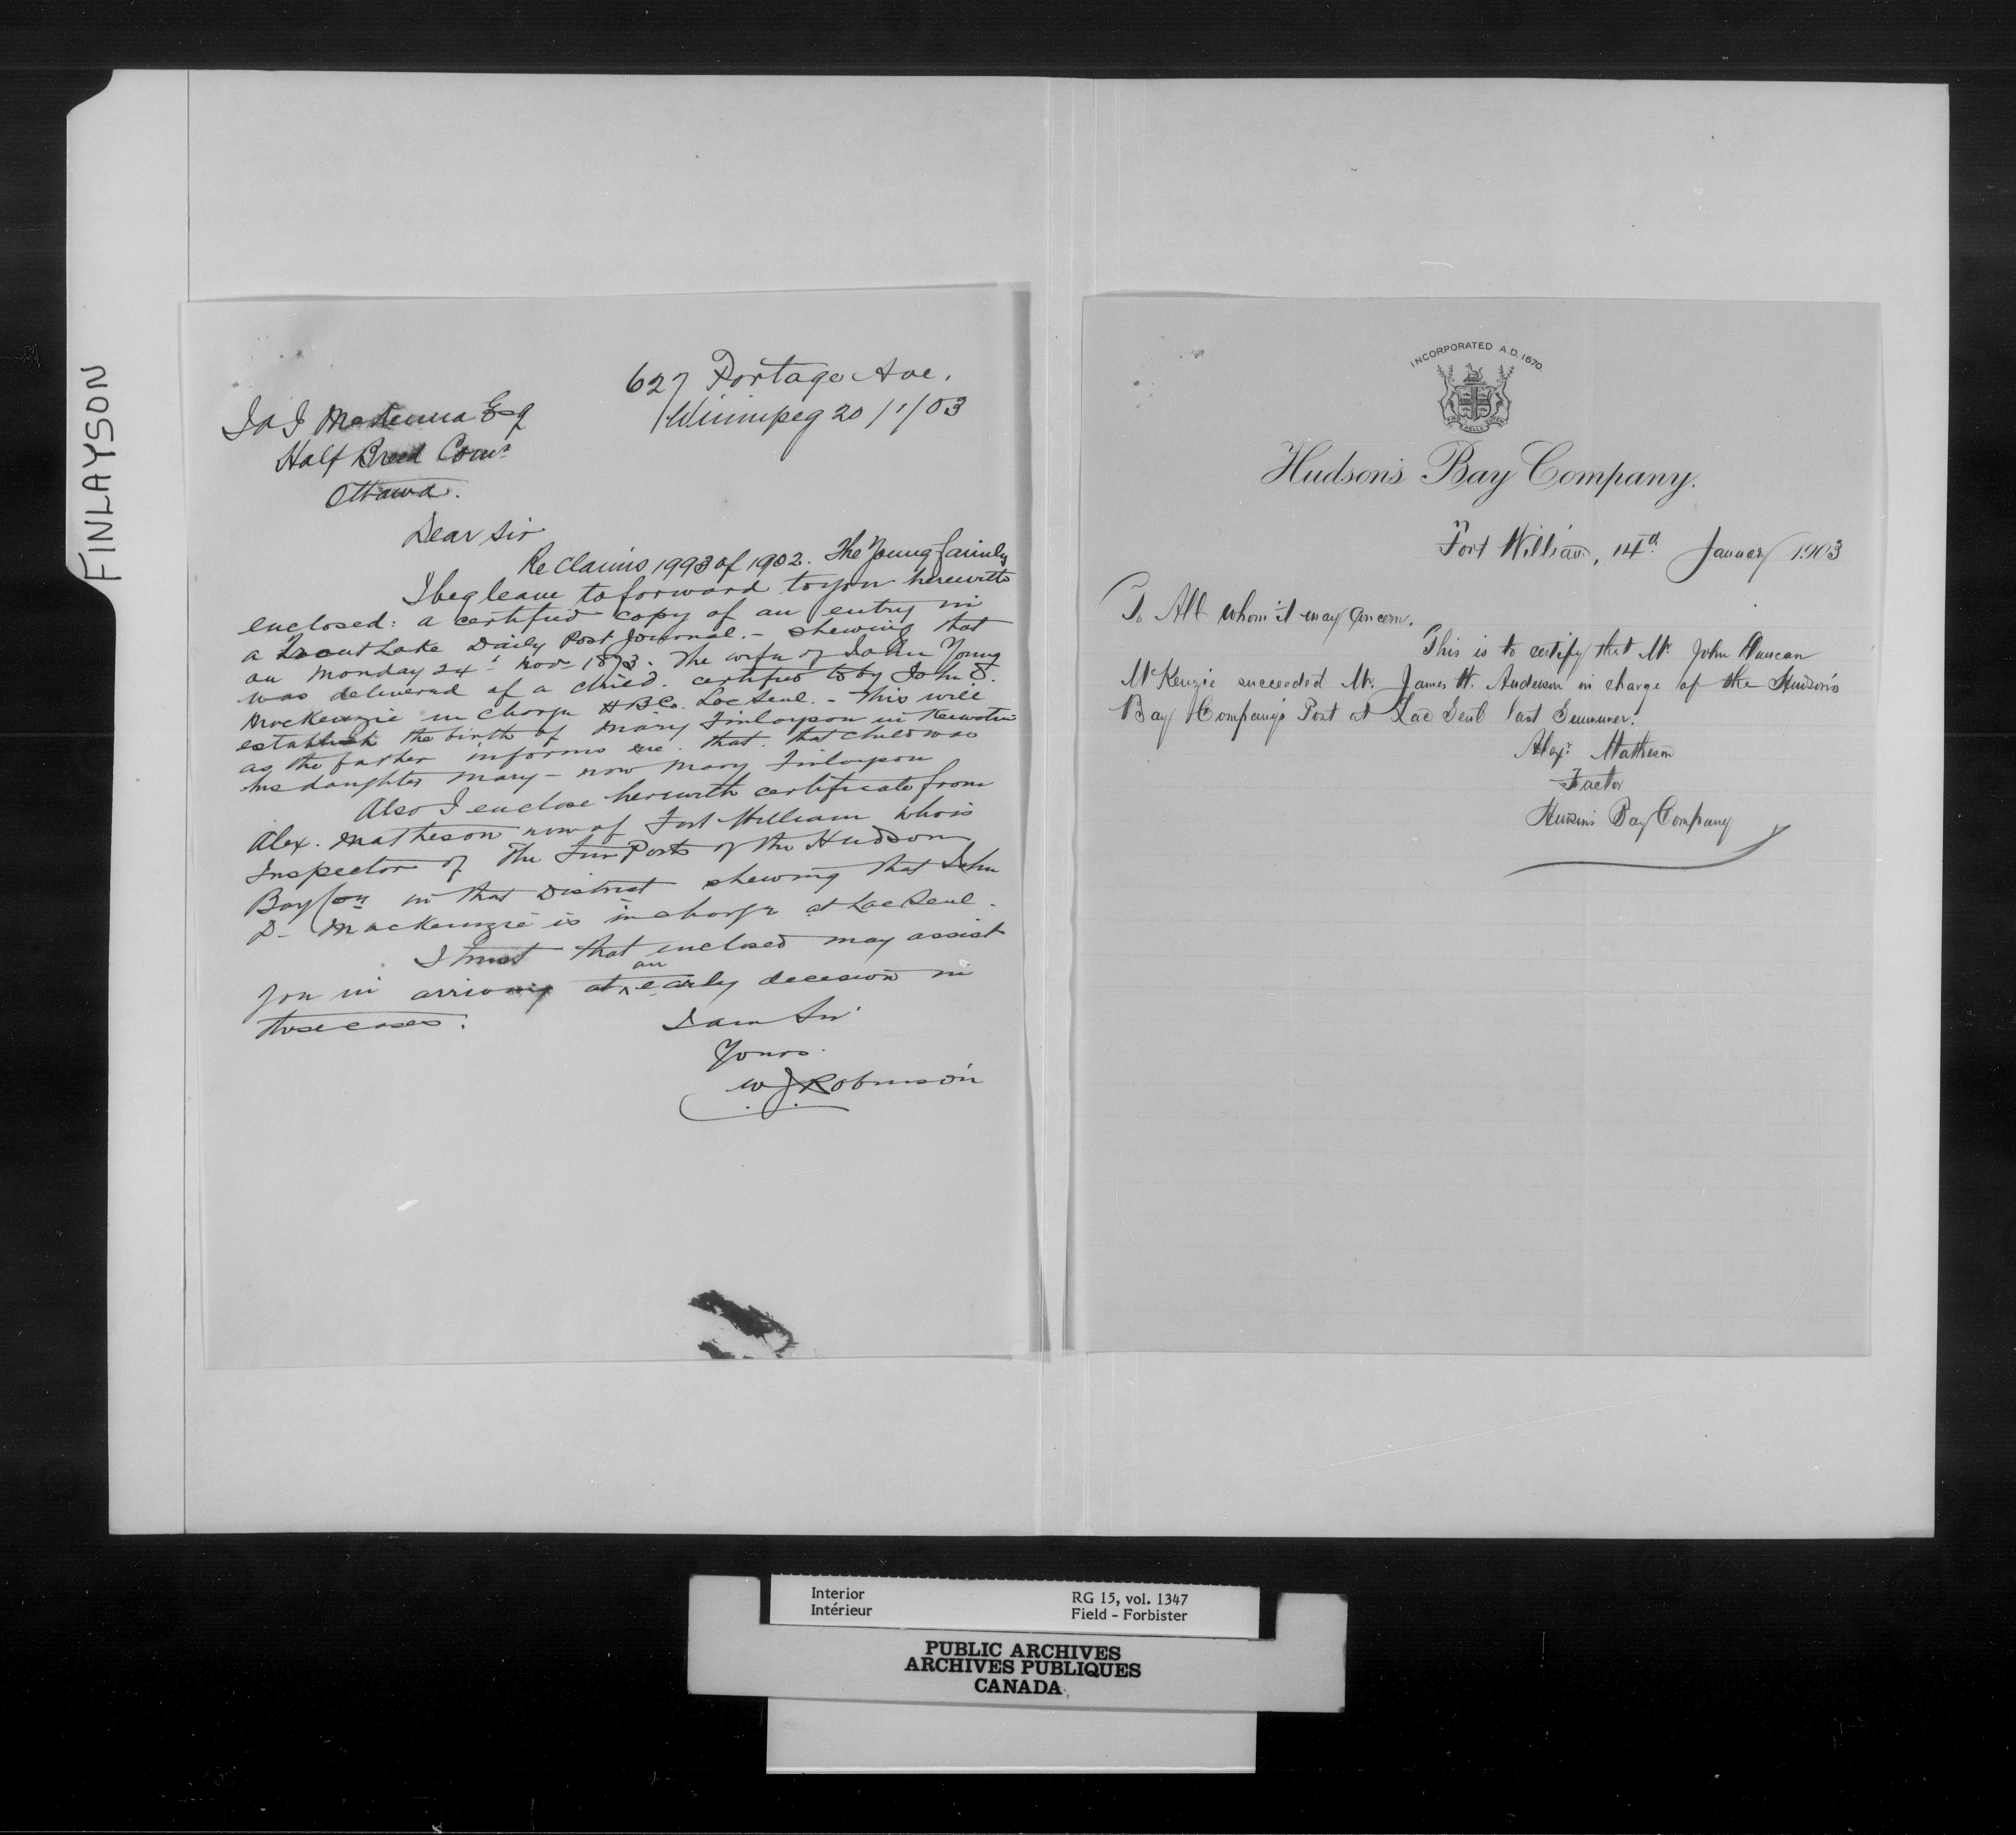 FINLAYSON
627 Portage Ave.
Winnipeg 20/1/03
J A J McKenna Esq
Half Breed Comr
Ottawa.
Dear Sir
Re Claims 1993 of 1902. The Young family
I beg leave to forward to you herewith
enclosed: a certified copy of an entry in
a Trout Lake Daily Post Journal. - shewing that
on Monday 24th Novr 1873. The wife of John Young
was delivered of a child. certified to by John D.
MacKenzie in charge H B Co. Lac Seul. - This will
establish the birth of Mary Finlayson in Keewatin
as the father informs me. that. that child was
his daughter Mary - now Mary Finlayson
Also I enclose herewith certificate from
Alex. Matheson now of Fort William who is
Inspector of The Fur Posts of the Hudson
Bay Coy in that District shewing that John
D- MacKenzie is in charge at Lac Seul -
I trust that enclosed may assist
you in arriving at an early decision in
those cases.
I am Sir
Yours
W J Robinson
INCORPORATED A.D. 1670
Hudson's Bay Company.
Fort William, 14th January 1903
To All whom it may concern.
This is to certify that Mr. John Duncan
McKenzie succeeded Mr. James H. Anderson in charge of the Hudson's
Bay Company's Post at Lac Seul last Summer.
Alexr. Matheson
Factor
Hudson's Bay Company
Interior
Intérieur
RG 15, vol. 1347
Field - Forbister
PUBLIC ARCHIVES
ARCHIVES PUBLIQUES
CANADA